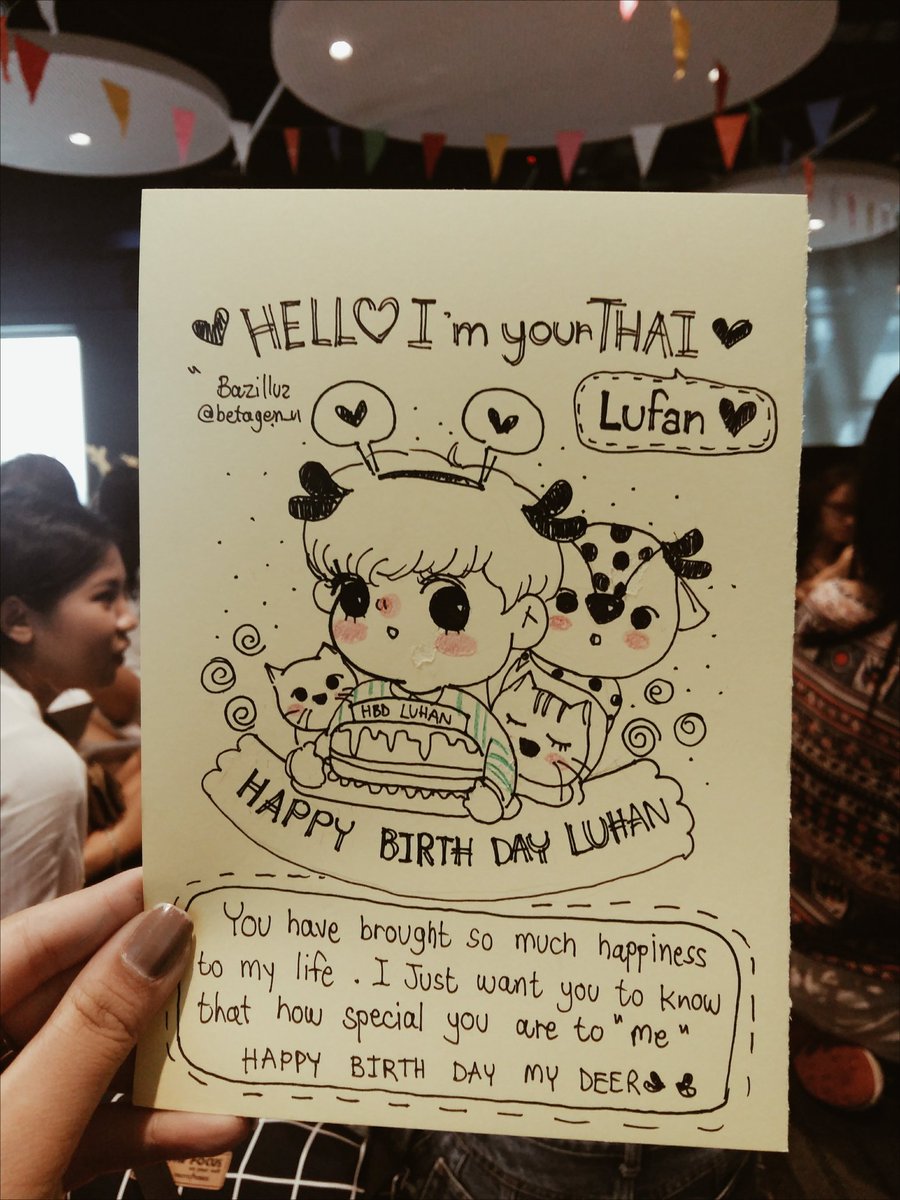 HELLO I'm your THAI
" Bazilluz
@betagen_n
Lufan
HBD LUHAN
HAPPY BIRTH DAY LUHAN
You have brought so much happiness
to my life . I Just want you to know
that how special you are to "me"
HAPPY BIRTH DAY MY DEER